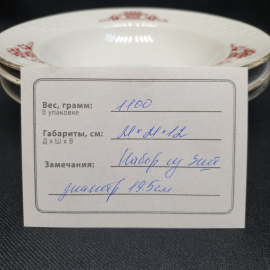 Вес, грамм: 1100
В упаковке
Габариты, см: 21*21*12
Д х Ш х В
Замечания: Набор из 3шт
диаметр 19.5см